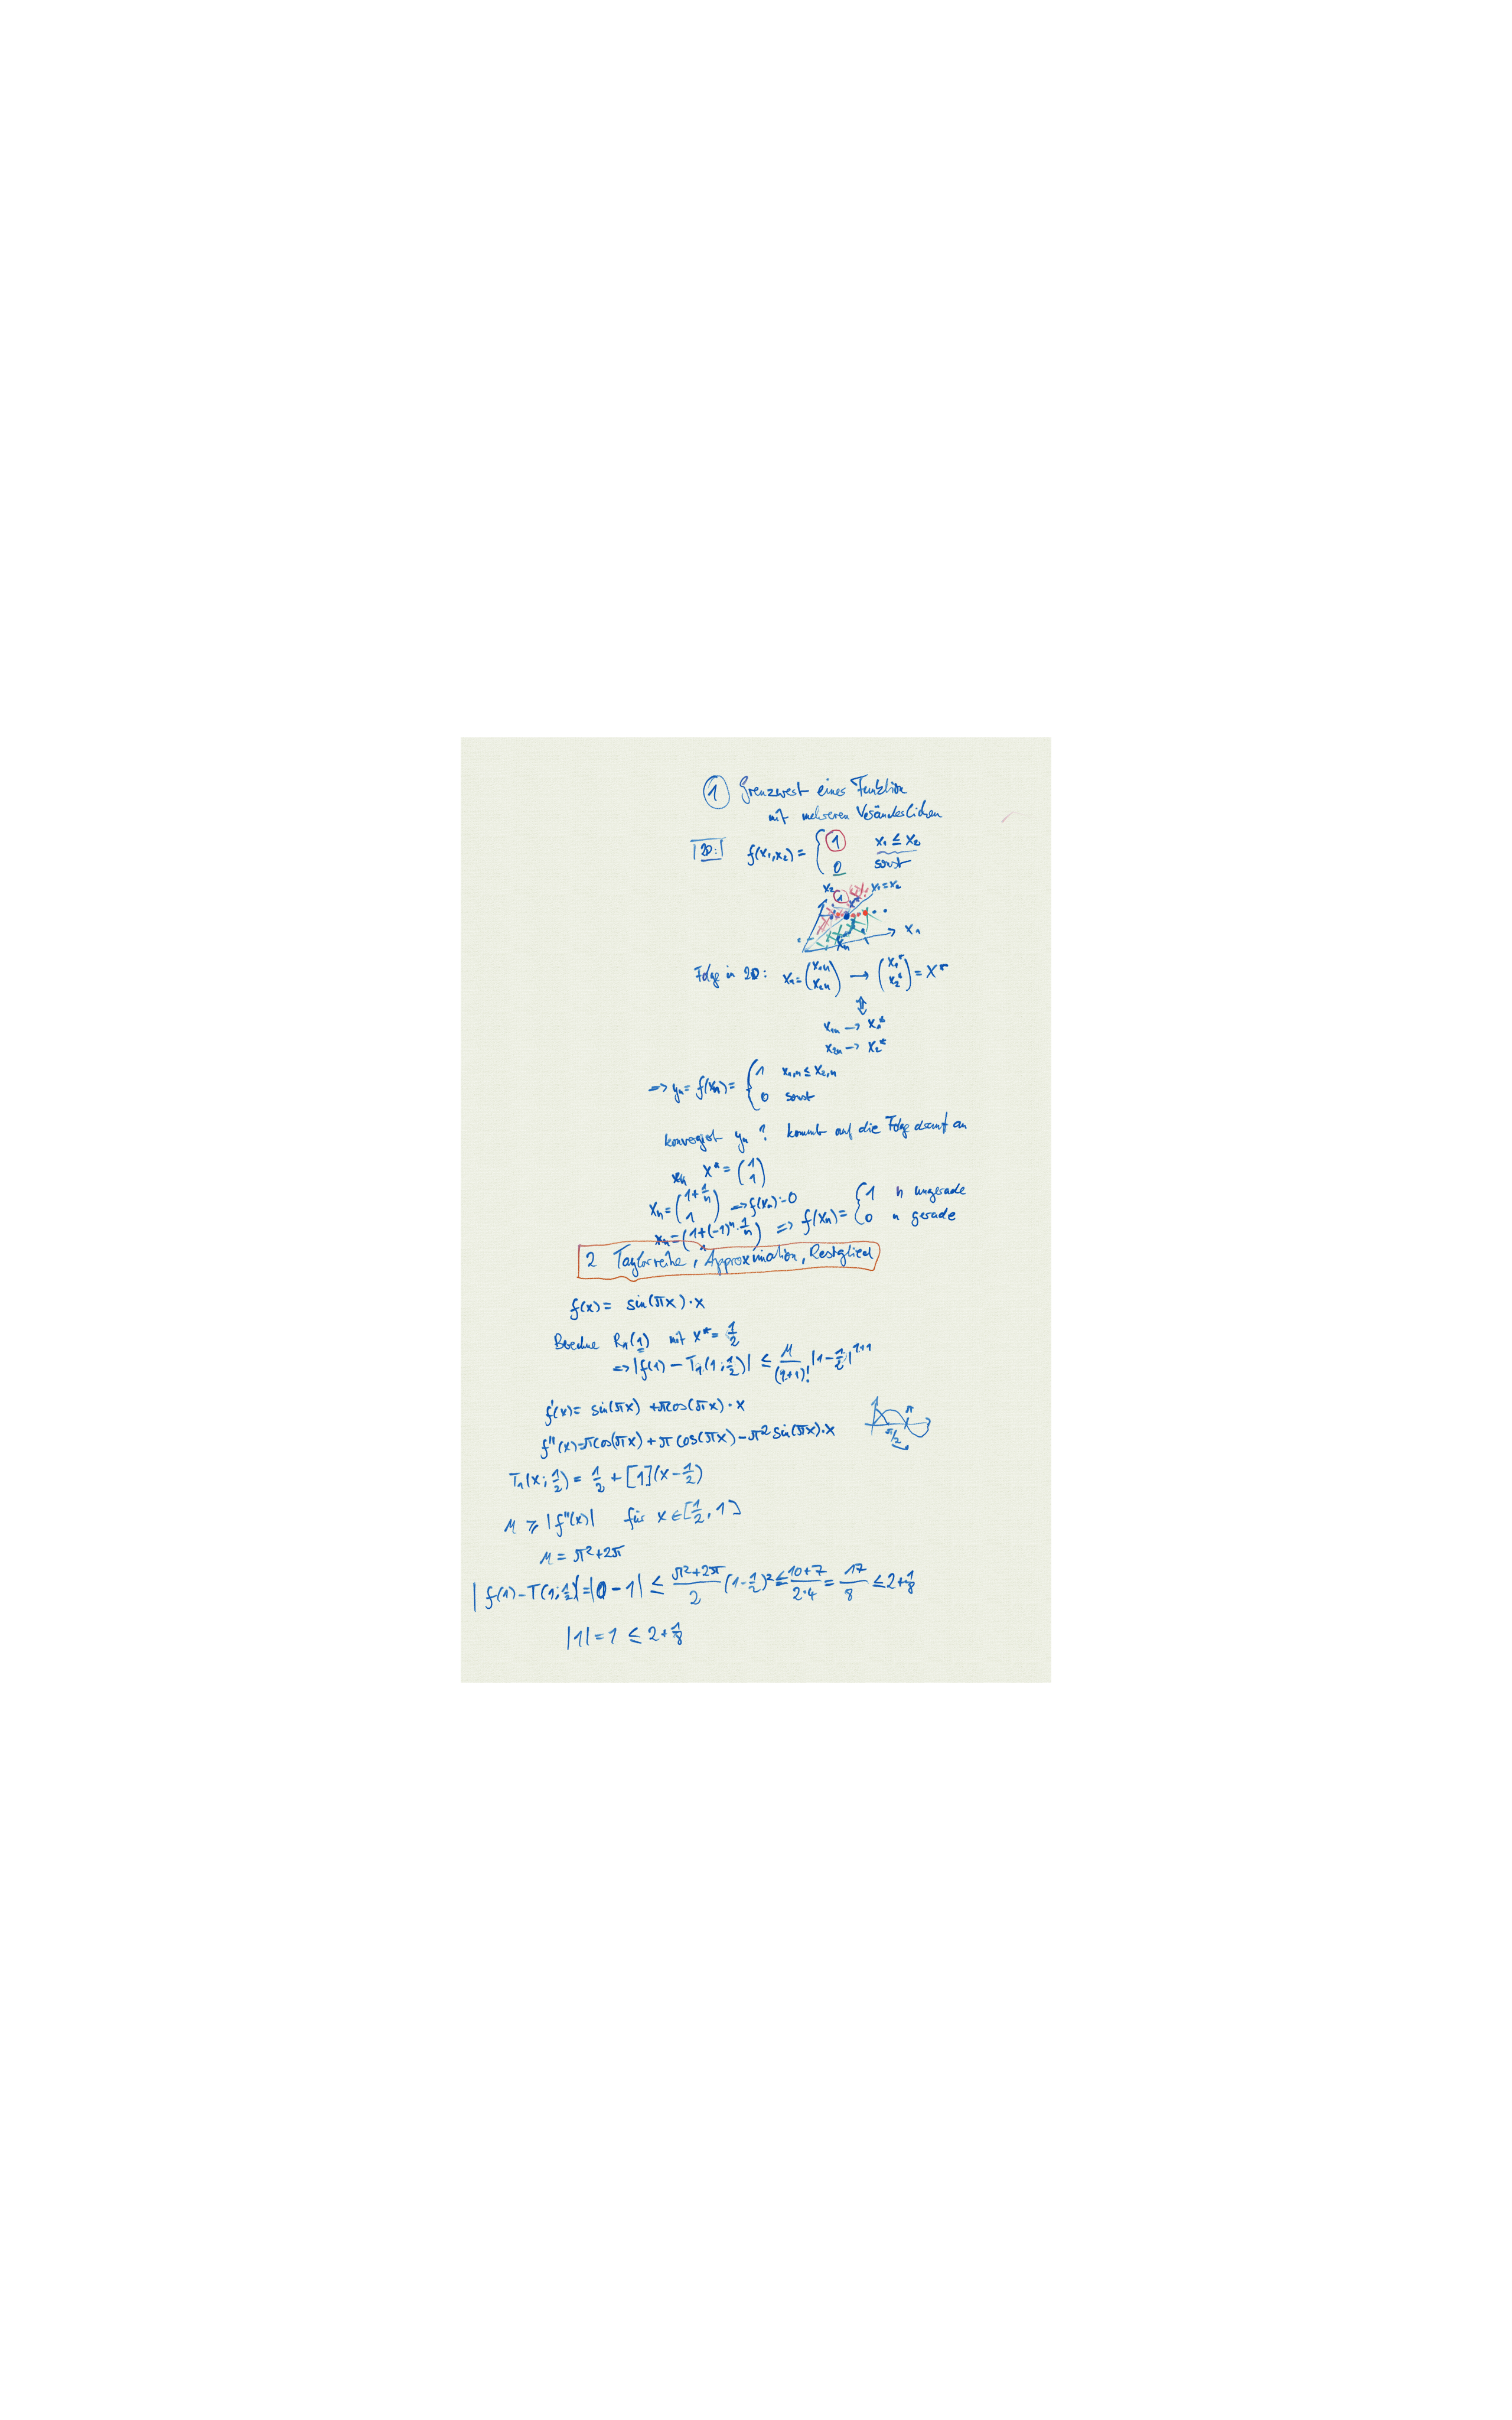 1 Grenzwert einer Funktion
mit mehreren Veränderlichen
2D: f(x₁,x₂) = { 1 x₁ ≤ x₂
0 sonst
x₂ 1 x* x₁=x₂
x₁
xₙ
Folge in 2D: xₙ = (x₁ₙ x₂ₙ) → (x₁* x₂*) = x*
⇕
x₁ₙ → x₁*
x₂ₙ → x₂*
=> yₙ = f(xₙ) = { 1 x₁,ₙ ≤ x₂,ₙ
0 sonst
konvergiert yₙ? kommt auf die Folge drauf an
x* = (1 1)
xₙ = (1+1/n 1) => f(xₙ) = 0
xₙ = (1+(-1)ⁿ·1/n 1) => f(xₙ) = { 1 n ungerade
0 n gerade
2 Taylorreihe, Approximation, Restglied
f(x) = sin(πx)·x
Berechne R₁(1) mit x* = 1/2
=> |f(1) − T₁(1;1/2)| ≤ M/(1+1)! |1−1/2|¹⁺¹
f'(x) = sin(πx) + πcos(πx)·x
π
π/2
f''(x) = πcos(πx) + π cos(πx) − π² sin(πx)·x
T₁(x;1/2) = 1/2 + [1](x−1/2)
M ≥ |f''(x)| für x∈[1/2,1]
M = π²+2π
|f(1)−T(1;1/2)| = |0−1| ≤ (π²+2π)/2 (1−1/2)² ≤ (10+7)/(2·4) = 17/8 ≤ 2+1/8
|1| = 1 ≤ 2+1/8